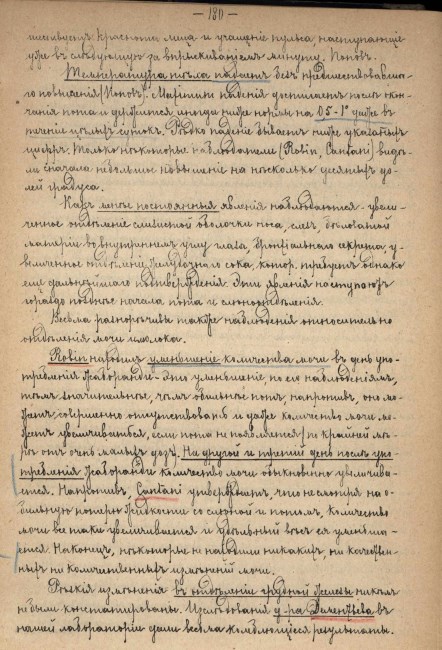 — 180 —
шествуетъ краснота лица и учащеніе пульса наступающіе
уже въ слѣдующую за впрыскиваніемъ минуту. Поповъ.
Температура тѣла падаетъ безъ предшествовавша-
го повышенія (Поповъ). Maximum паденія достигаетъ послѣ окон-
чанія пота и держится иногда ниже нормы на 0,5-1° даже въ
теченіи цѣлыхъ сутокъ. Рѣдко паденіе бываетъ ниже указанныхъ
цифръ. Только нѣкоторые наблюдатели (Robin, Cantani) видѣ-
ли сначала небольшое повышеніе на нѣсколько десятыхъ до-
лей градуса.
Какъ менѣе постоянныя явленія наблюдаются - увели-
ченное отдѣленіе слизистой оболочки носа, слезъ,
матеріи во внутреннемъ углу глаза, бронхіальнаго секрета, у-
величенное отдѣленіе желудочнаго сока, котор. требуетъ однако
еще дальнѣйшаго подтвержденія. Эти явленія наступаютъ
гораздо позднѣе начала пота и слюноотдѣленія.
Весьма разнорѣчивы также наблюденія относительно
отдѣленія мочи и молока.
Robin находилъ уменьшеніе количества мочи въ день упо-
требленія Жаборанди. Это уменьшеніе по его наблюденіямъ,
тѣмъ значительнѣе, чѣмъ обильнѣе потъ, напротивъ, оно мо-
жетъ совершенно отсутствовать и даже количество мочи мо-
жетъ увеличиваться, если пота не появляется/по крайней мѣ-
рѣ отъ очень малыхъ дозъ. На другой и третій день послѣ упо-
требленія Жаборанди количество мочи обыкновенно увеличива-
ется. Напротивъ, Cantani утверждаетъ, что не смотря на о-
бильную потерю жидкости со слюной и потомъ, количество
мочи все таки увеличивается и удѣльный вѣсъ ея уменьша-
ется. Наконецъ, нѣкоторые не находили никакихъ, ни качествен-
ныхъ ни количественныхъ измѣненій мочи.
Рѣзкія измѣненія въ отдѣленіе грудной железы никѣмъ
не были констатированы. Изслѣдованія д-ра Дементьева въ
нашей лабораторіи дали весьма колеблющіеся результаты.